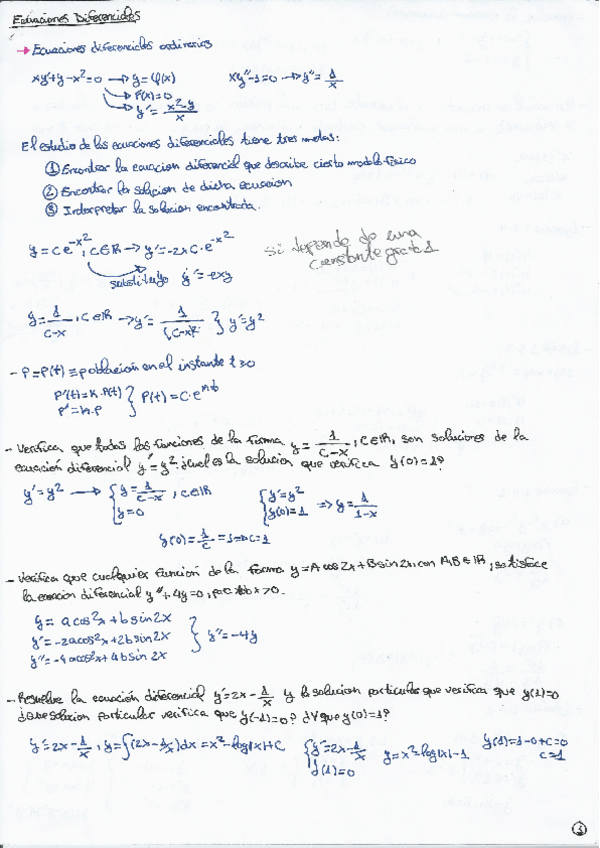 Ecuaciones Diferenciales
→ Ecuaciones diferenciales ordinarias
xy'+y-x²=0 → y=φ(x) xy''-1=0 → y''=1/x
→ F(x)=0
→ y'=(x²-y)/x
El estudio de las ecuaciones diferenciales tiene tres metas:
① Encontrar la ecuacion diferencial que describe cierto modelo fisico
② Encontrar la solucion de dicha ecuacion
③ Interpretar la solucion encontrada.
y=Ce^{-x²}, C∈ℝ → y'=-2xC·e^{-x²} si depende de una
substituyo y'=-2xy constante grado 1
y=1/(C-x), C∈ℝ → y'=1/(C-x)² } y'=y²
- P=P(t)≡población en el instante t≥0
P'(t)=K·P(t)
P'=K·P } P(t)=C·e^{Kt}
- Verifica que todas las funciones de la forma y=1/(C-x), C∈ℝ, son soluciones de la
ecuación diferencial y'=y². ¿Cual es la solucion que verifica y(0)=1?
y'=y² → { y=1/(C-x), C∈ℝ { y'=y²
y=0 y(0)=1 ⇒ y=1/(1-x)
y(0)=1/C=1 ⇒ C=1
- Verifica que cualquier función de la forma y=A cos2x+B sin2x, con A,B∈ℝ, satisface
la ecuacion diferencial y''+4y=0, para todo x>0.
y= acos2x+bsin2x
y'=-2acos2x+2bsin2x } y''=-4y
y''=-4acos2x+4bsin2x
- Resuelve la ecuación diferencial y'=2x-1/x y la solucion particular que verifica que y(1)=0
¿Que solucion particular verifica que y(-1)=0? ¿Y que y(0)=1?
y'=2x-1/x, y=∫(2x-1/x)dx=x²-log|x|+C { y'=2x-1/x y=x²-log|x|-1 y(1)=1-0+C=0
y(1)=0 C=1
①